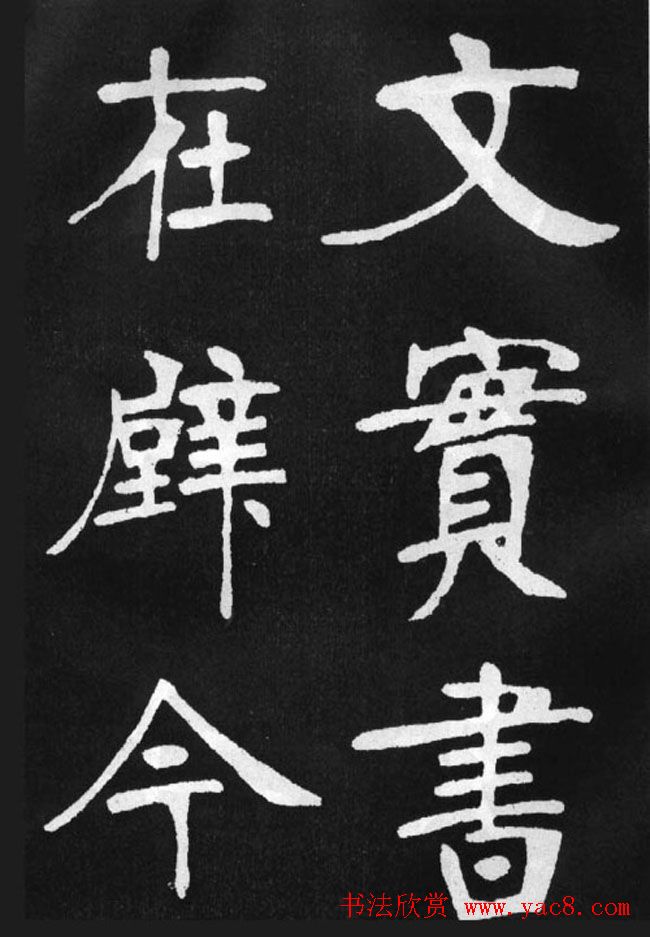 文實書
在壁今
书法欣赏 www.yac8.com